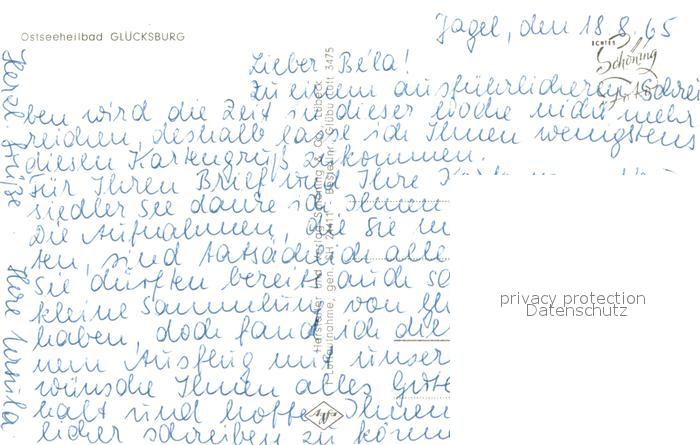 Ostseeheilbad GLÜCKSBURG
Jagel, den 18.8.65
ECHTES
Schöning
Foto
Lieber Béla!
Zu einem ausführlicheren Schrei
ben wird die Zeit in dieser Woche nicht mehr
reichen, deshalb lasse ich Ihnen wenigstens
diesen Kartengruß zukommen.
Für Ihren Brief und Ihre
siedler See danke ich Ihnen
Die Aufnahmen, die Sie
ten, sind tatsächlich alle
Sie dürften bereits auch so
kleine Sammlung von Gl
haben, doch fand ich die
nem Ausflug mit unser
wünsche Ihnen alles Gute
halt und hoffe Ihnen
licher schreiben zu könn
Herzl. Grüße Ihre Ursula
Hersteller und Verlag Schöning & Co., Lübeck
Luftaufnahme, gen. SH
Bestellnr. Glübu Luft 3475
Agfa
privacy protection
Datenschutz